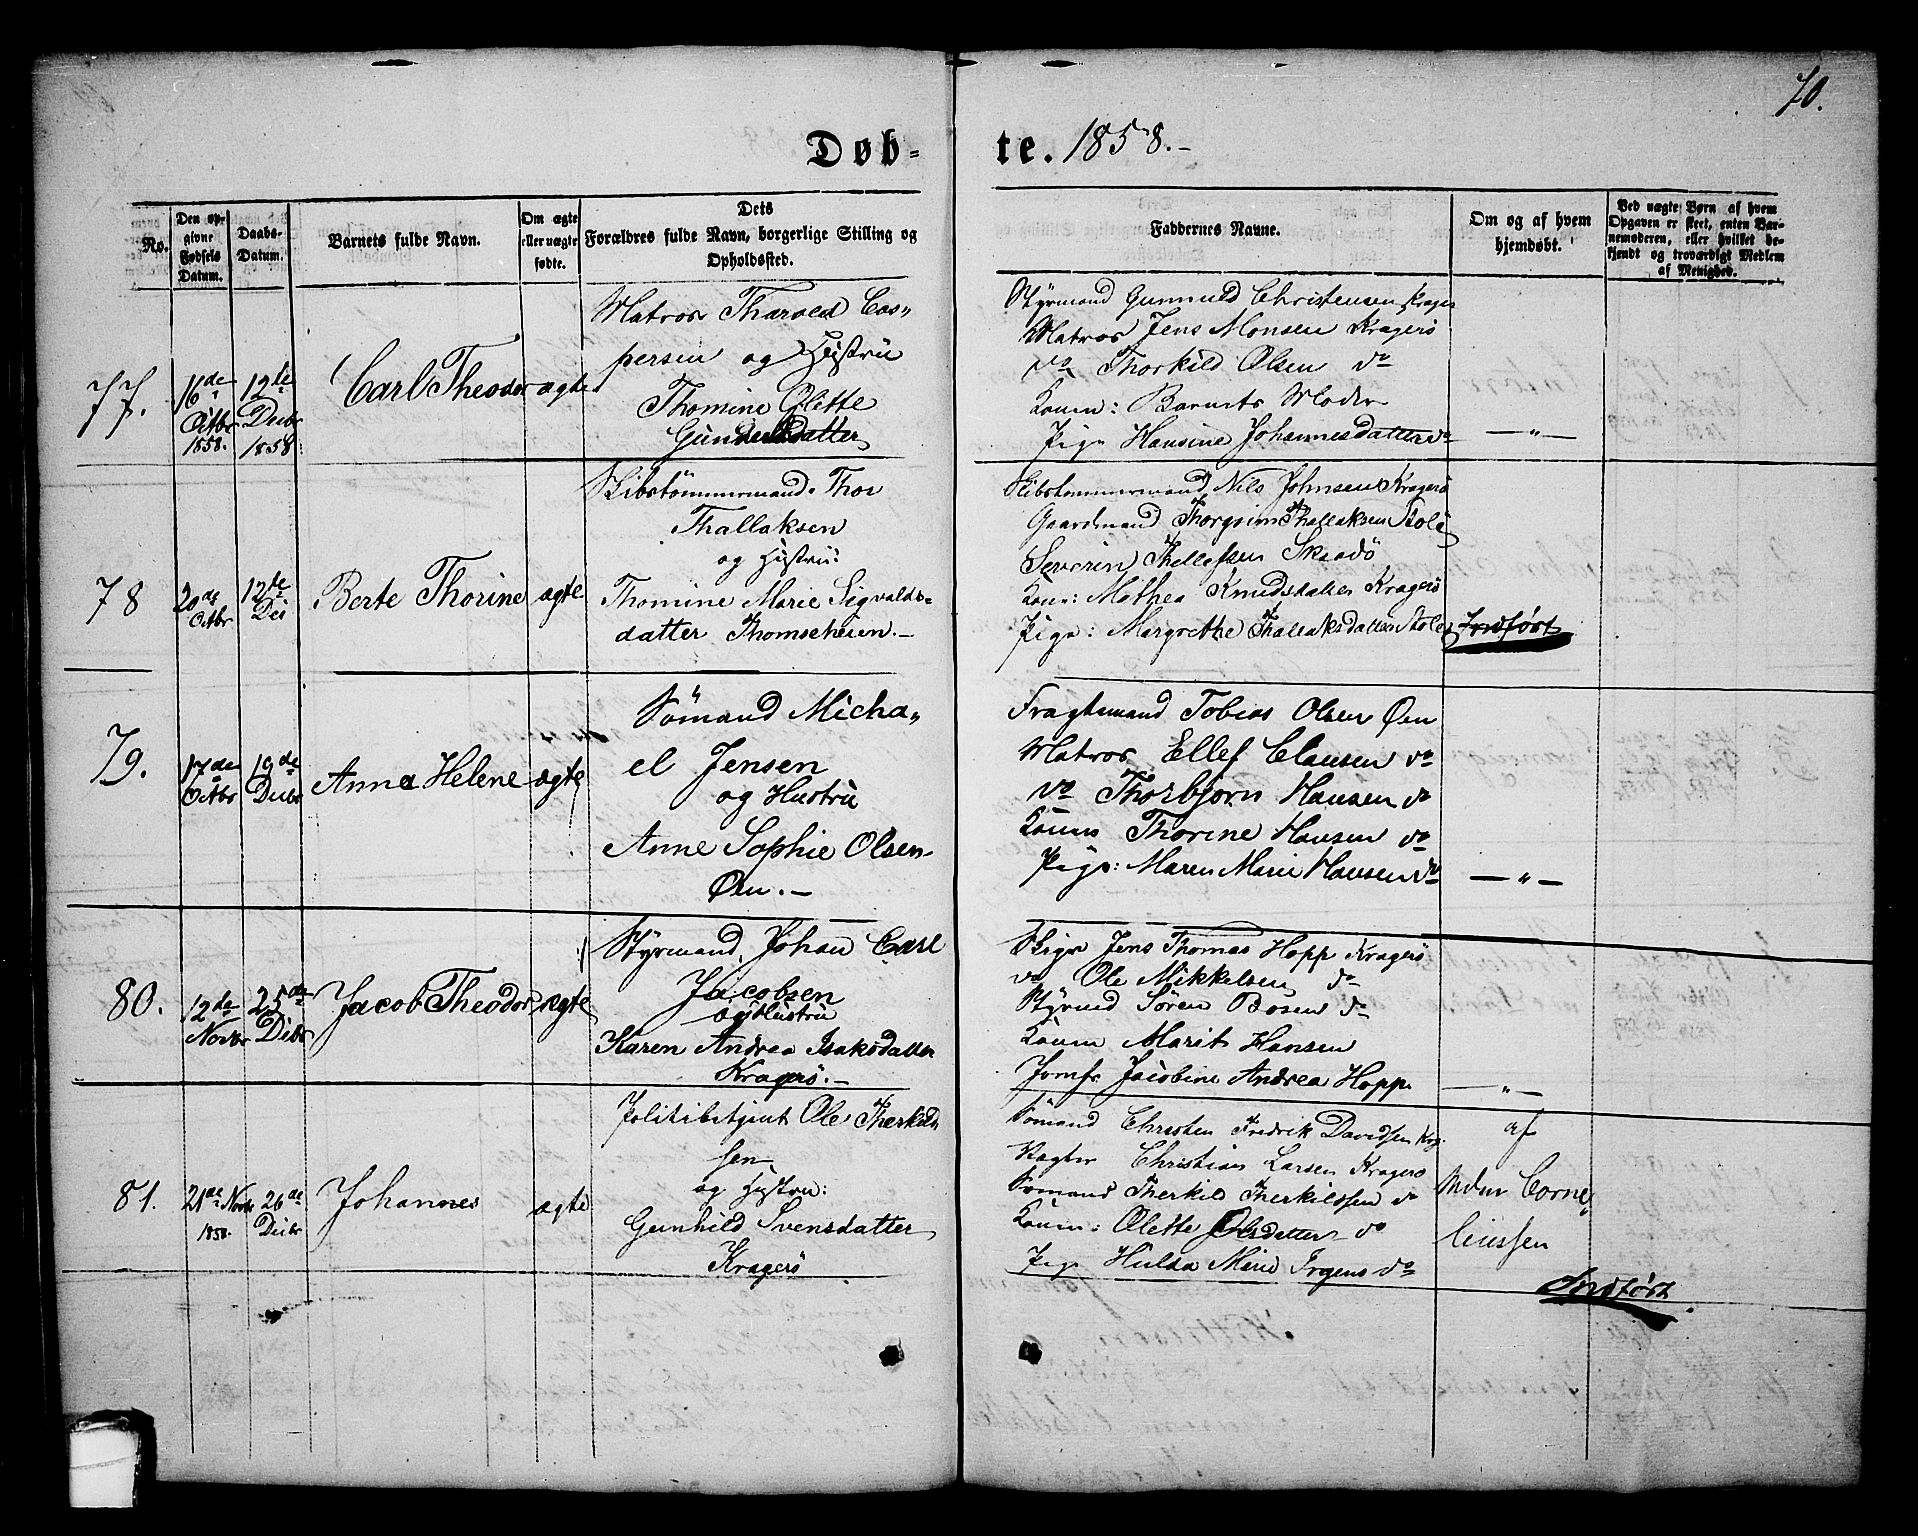 70.
Døb-te. 1858.-
No.
Den opgivne Fødsels Datum.
Daabs-Datum.
Barnets fulde Navn.
Om ægte eller uægte fødte.
Dets Forældres fulde Navn, borgerlige Stilling og Opholdssted.
Faddernes Navne.
Om og af hvem hjemdøbt.
Ved uægte Børn af hvem Opgaven er skeet, enten Barnemoderen, eller hvilket bekjendt og troværdigt Medlem af Menighed.
77.
16de Octbr 1858.
12te Decbr 1858.
Carl Theodor
ægte
Matros Tharald Cas-
persen og Hustru
Thomine Olette
Gundersdatter
Styrmand Gunnuld Christensen Kragerö
Matros Jens Monsen Kragerö
do Thorkild Olsen do
Konen: Barnets Moder
Pige Hansine Johannesdatter do
— „ —
78
20de Octbr
12te Dec
Berte Thorine
ægte
Skibstömmermand Thor
Thallaksen
og Hustru:
Thomine Marie Sigvalds-
datter Thomseheien.-
Skibstømmermand Nils Johnsen Kragerö
Gaardmand Thorgrim Thallaksen Stole
Severin Thellefsen Skaadö
Konen: Mathea Knudsdatter Kragerö
Pige: Margrethe Thallaksdatter Stole
Indført
79.
17de Octbr
19de Decbr
Anne Helene
ægte
Sömand Micha-
el Jensen
og Hustru
Anne Sophie Olsen
Øen.-
Fragtemand Tobias Olsen Øen
Matros Ellef Clausen do
do Thorbjørn Hansen do
Konen Thorine Hansen do
Pige: Maren Marie Hansen do
— „ —
80.
12de Novbr
25de Decbr
Jacob Theodor
ægte
Styrmand, Johan Carl
Jacobsen
og Hustru
Karen Andrea Isaksdatter
Kragerö.-
Skipr Jens Thomas Hopp Kragerö
do Ole Mikkelsen do
Styrmd Sören Bosen do
Konen Marit Hansen
Jomfr Jacobine Andrea Hopp
— „ —
81.
21de Novbr 1858.
26de Decbr
Johannes
ægte
Politibetjent Ole Therkild-
sen
og Hustru:
Gunhild Svensdatter
Kragerö
Sömand Christen Fredrik Davidsen Krag.
Vægter Christian Larsen Kragerö
Sömand Therkild Therkildsen do
Konen: Olette Olsdatter do
Pige Hulda Marie Irgens do
af
Mdm Corne
liussen
Indført